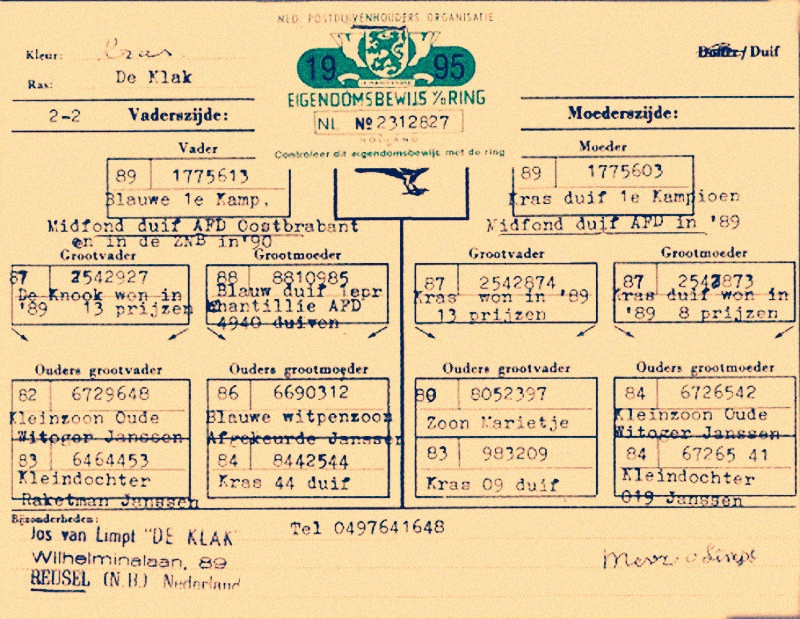 NED. POSTDUIVENHOUDERS ORGANISATIE
Kleur: Kras
Ras: De Klak
1995
Doffer / Duif
EIGENDOMSBEWIJS v/d RING
NL No 2312827
HOLLAND
Controleer dit eigendomsbewijs met de ring
2-2 Vaderszijde:
Moederszijde:
Vader
89 1775613
Blauwe 1e Kamp.
Midfond duif AFD Oostbrabant
en in de ZNB in '90
Moeder
89 1775603
Kras duif 1e Kampioen
Midfond duif AFD in '89
Grootvader
87 2542927
De Knook won in
'89 13 prijzen
Grootmoeder
88 8810985
Blauw duif 1epr
Chantillie AFD
4940 duiven
Grootvader
87 2542874
Kras won in '89
13 prijzen
Grootmoeder
87 2542873
Kras duif won in
'89 8 prijzen
Ouders grootvader
82 6729648
Kleinzoon Oude
Witoger Janssen
83 6464453
Kleindochter
Raketman Janssen
Ouders grootmoeder
86 6690312
Blauwe witpenzoon
Afgekeurde Janssen
84 8442544
Kras 44 duif
Ouders grootvader
80 8052397
Zoon Marietje
83 983209
Kras 09 duif
Ouders grootmoeder
84 6726542
Kleinzoon Oude
Witoger Janssen
84 67265 41
Kleindochter
019 Janssen
Bijzonderheden:
Jos van Limpt "DE KLAK"
Wilhelminalaan, 89
REUSEL (N.B.) Nederland
Tel 0497641648